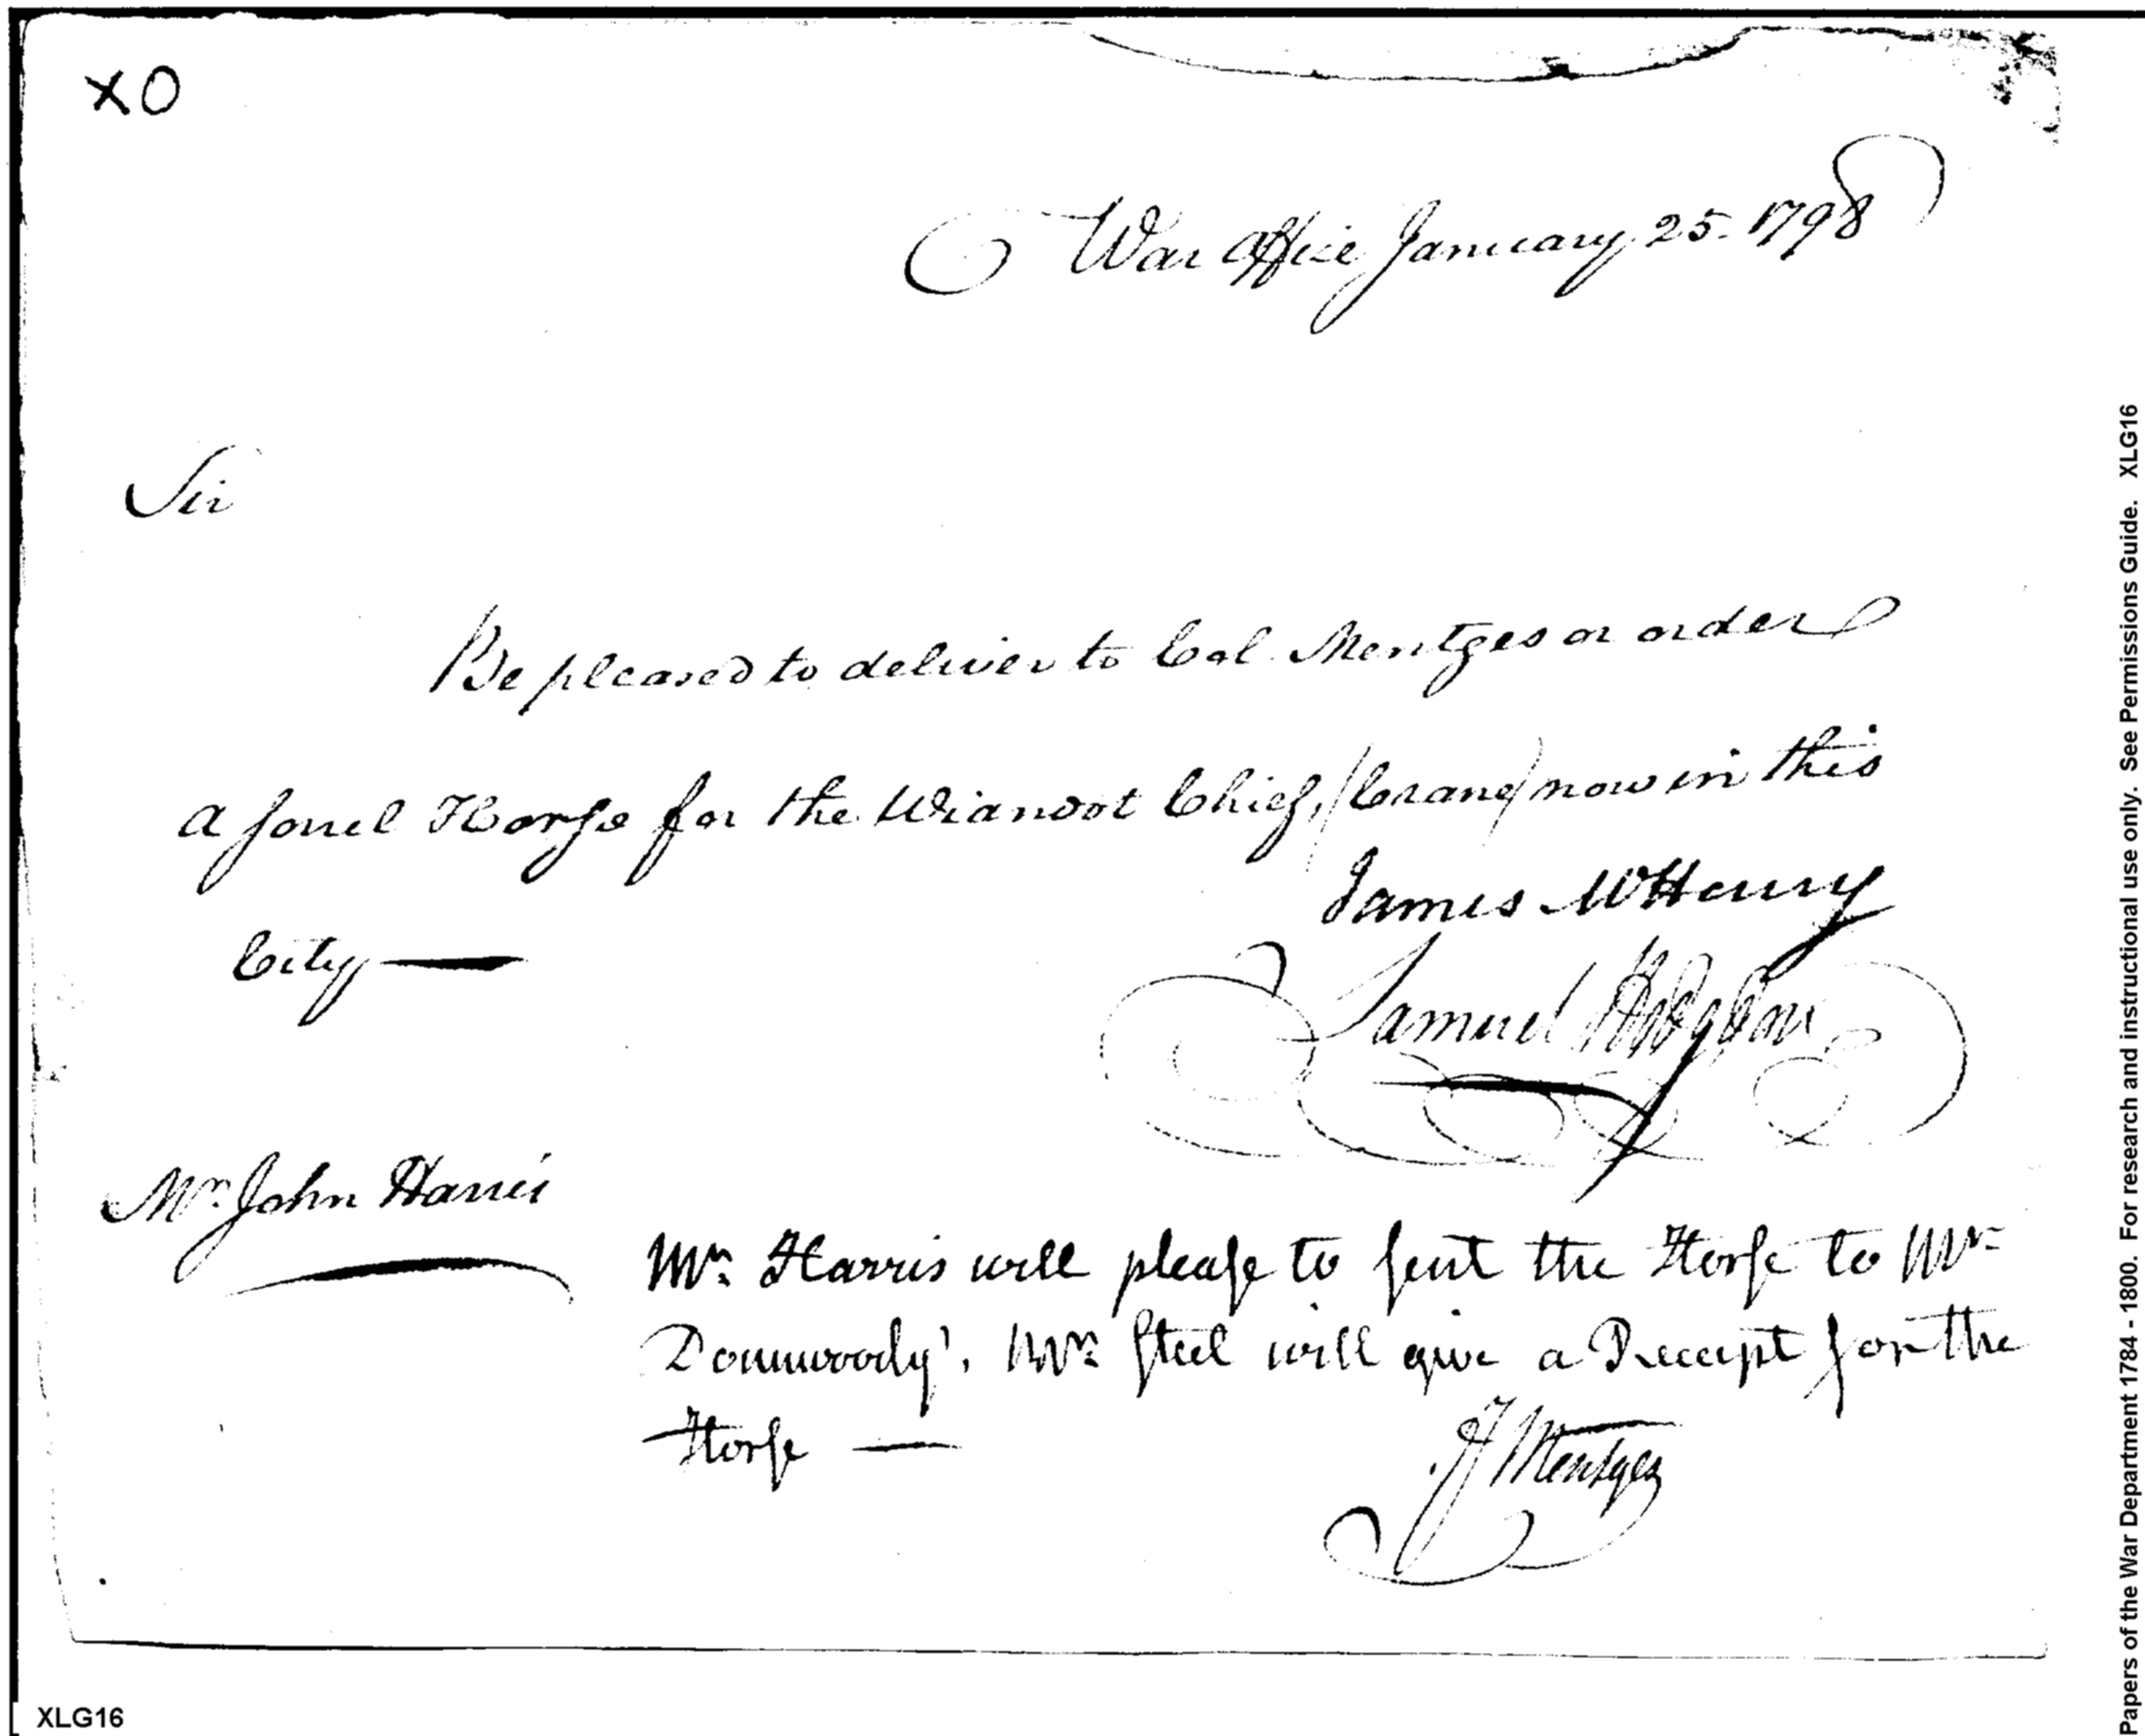 XO
War Office January 25. 1798
Sir
Be pleased to deliver to Col. Mentges or order
a sorrel Horse for the Wiandot Chief, (Crane) now in this
City —
James McHenry
Samuel Hodgdon
Mr. John Harris
Mr. Harris will please to sent the Horse to Mr.
Dounwoody', Mr. Steel will give a Receipt for the
Horse —
F Mentges
XLG16
Papers of the War Department 1784 - 1800. For research and instructional use only. See Permissions Guide. XLG16